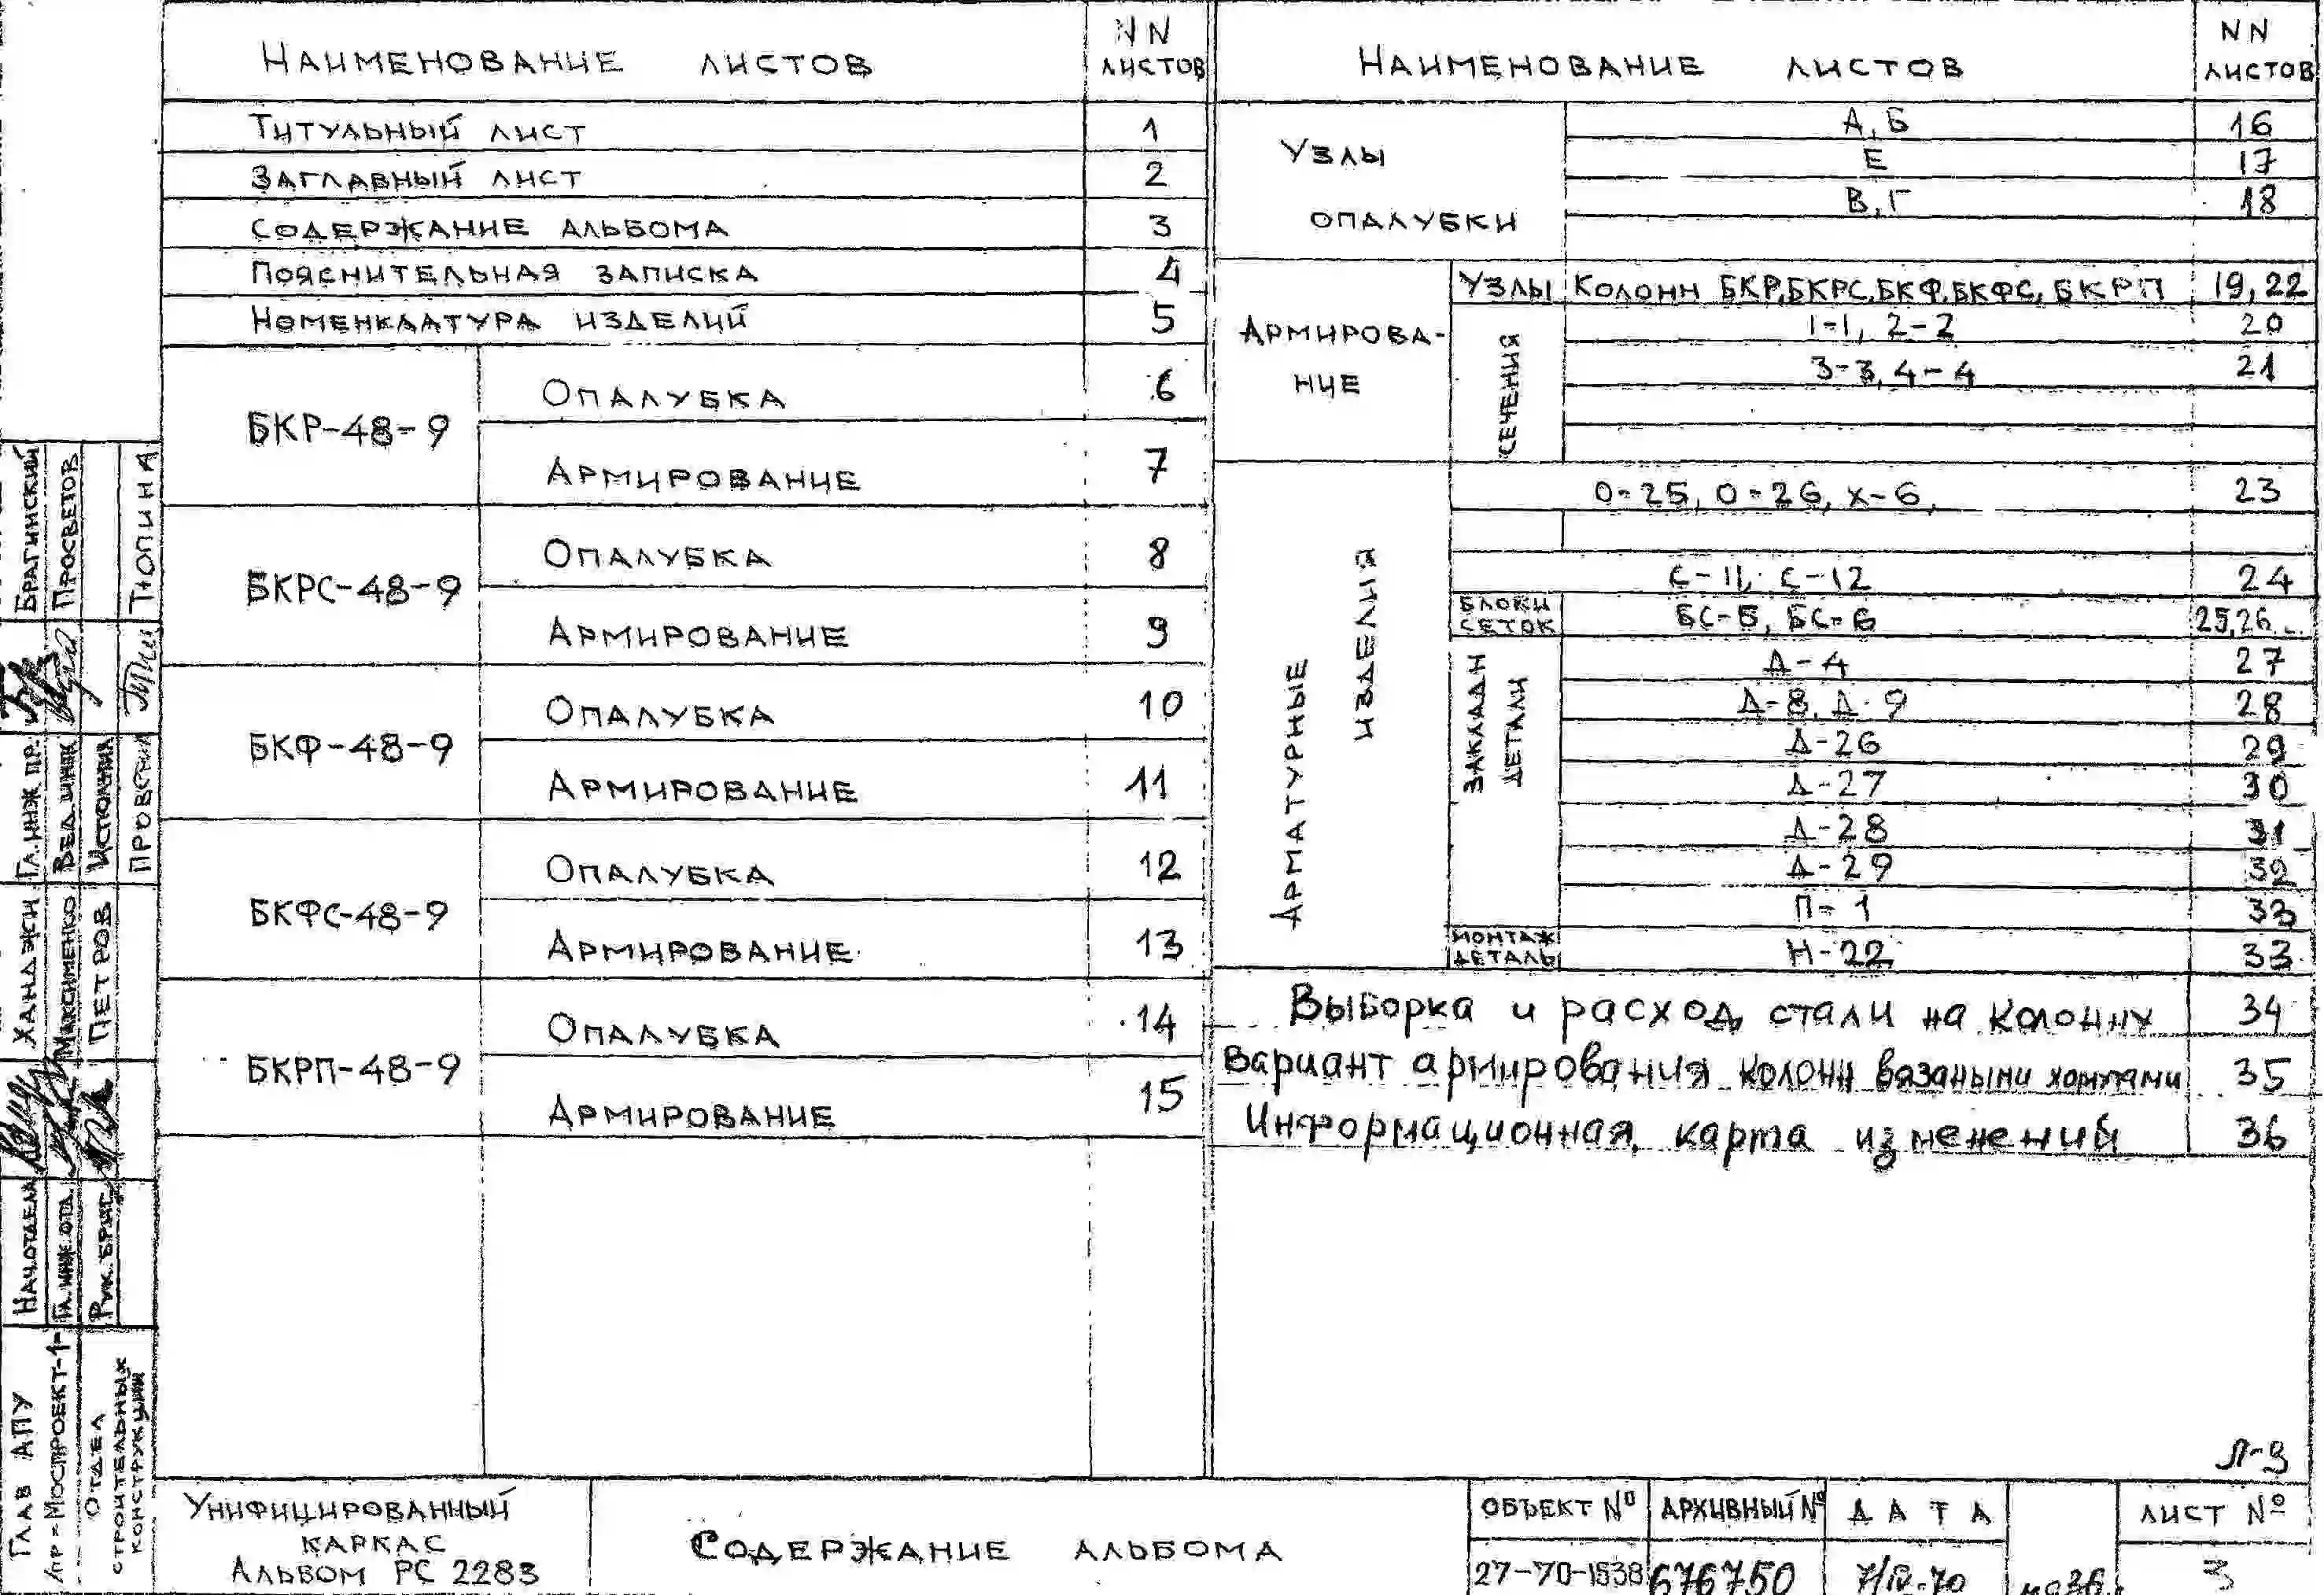 Наименование листов NN листов
Титульный лист 1
Заглавный лист 2
Содержание альбома 3
Пояснительная записка 4
Номенклатура изделий 5
БКР-48-9
Опалубка 6
Армирование 7
БКРС-48-9
Опалубка 8
Армирование 9
БКФ-48-9
Опалубка 10
Армирование 11
БКФС-48-9
Опалубка 12
Армирование 13
БКРП-48-9
Опалубка 14
Армирование 15
Наименование листов NN листов
Узлы
опалубки
А, Б 16
Е 17
В, Г 18
Армирова-
ние
Узлы Колонн БКР, БКРС, БКФ, БКФС, БКРП 19, 22
сечения
1-1, 2-2 20
3-3, 4-4 21
Арматурные
изделия
О-25, О-26, Х-6, 23
С-11, С-12 24
Блоки
сеток
БС-5, БС-6 25,26
Закладн
детали
Д-4 27
Д-8, Д-9 28
Д-26 29
Д-27 30
Д-28 31
Д-29 32
П-1 33
монтаж
деталь
Н-22 33
Выборка и расход стали на колонну 34
Вариант армирования колонн вязаными хомутами 35
Информационная карта изменений 36
Л-3
Брагинский
Просветов
Тюпина
Гл. инж. пр.
Вед. инж
Исполнил
Проверил
Ханджи
Максименко
Петров
Нач. отдела
Гл. инж. отд.
Рук. бриг.
Глав АПУ
Упр-Моспроект-1-
Отдел
строительных
конструкций
Унифицированный
каркас
Альбом РС 2283
Содержание альбома
Объект № 27-70-1538
Архивный № 676750
Дата
Лист № 3